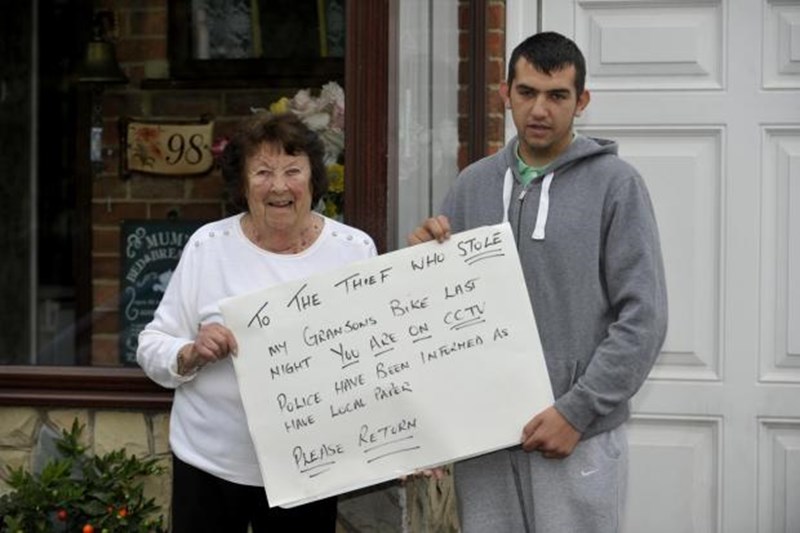 98
MUM'S
BED&BREA
TO THE THIEF WHO STOLE
MY GRANSONS BIKE LAST
NIGHT YOU ARE ON CCTV
POLICE HAVE BEEN INFORMED AS
HAVE LOCAL PAPER
PLEASE RETURN